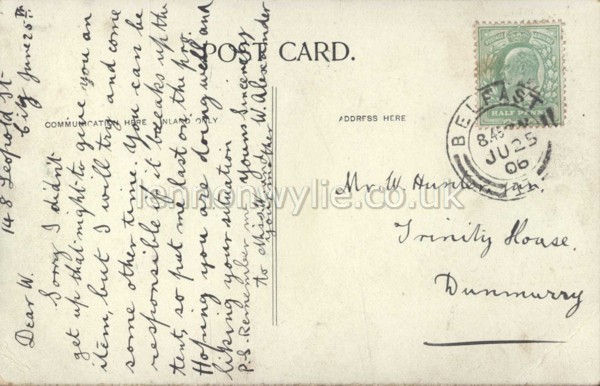 POST CARD.
COMMUNICATION HERE INLAND ONLY
ADDRESS HERE
148 Leopold St
City June 25th
Dear W.
Sorry I didn't
get up that night to give you an
item, but I will try and come
some other time. You can be
responsible if it breaks up the
tent, so put me last on the pro.
Hoping you are doing well and
liking your situation
Yours Sincerely
W. Alexander
P.S. Remember me
to Miss W. &
your mother
HALF PENNY
BELFAST
8.45
JU 25
06
Mr. W. Hunter, Jun.
Trinity House.
Dunmurry
lennonwylie.co.uk